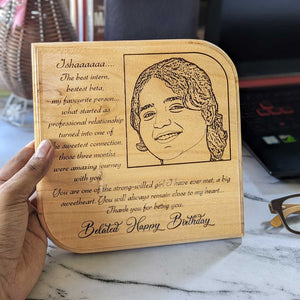 Ishaaaaaa....
The best intern,
bestest beta,
my favourite person...
what started as
professional relationship
turned into one of
the sweetest connection.
those three months
were amazing journey
with you.
You are one of the strong-willed girl I have ever met, a big
sweetheart. You will always remain close to my heart...
Thank you for being you.
Belated Happy Birthday